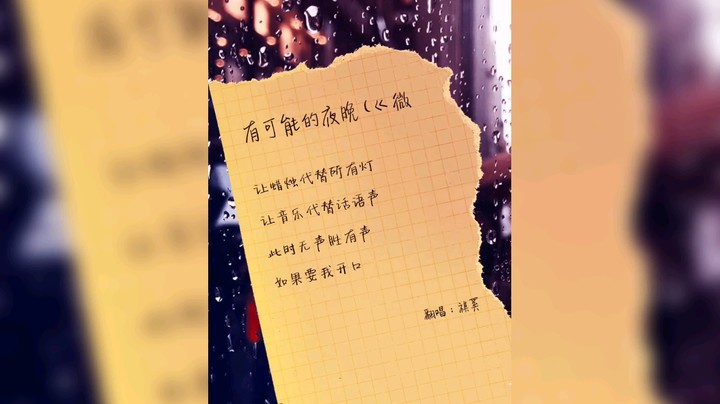 有可能的夜晚（<<微
让蜡烛代替所有灯
让音乐代替话语声
此时无声胜有声
如果要我开口
翻唱：祺英